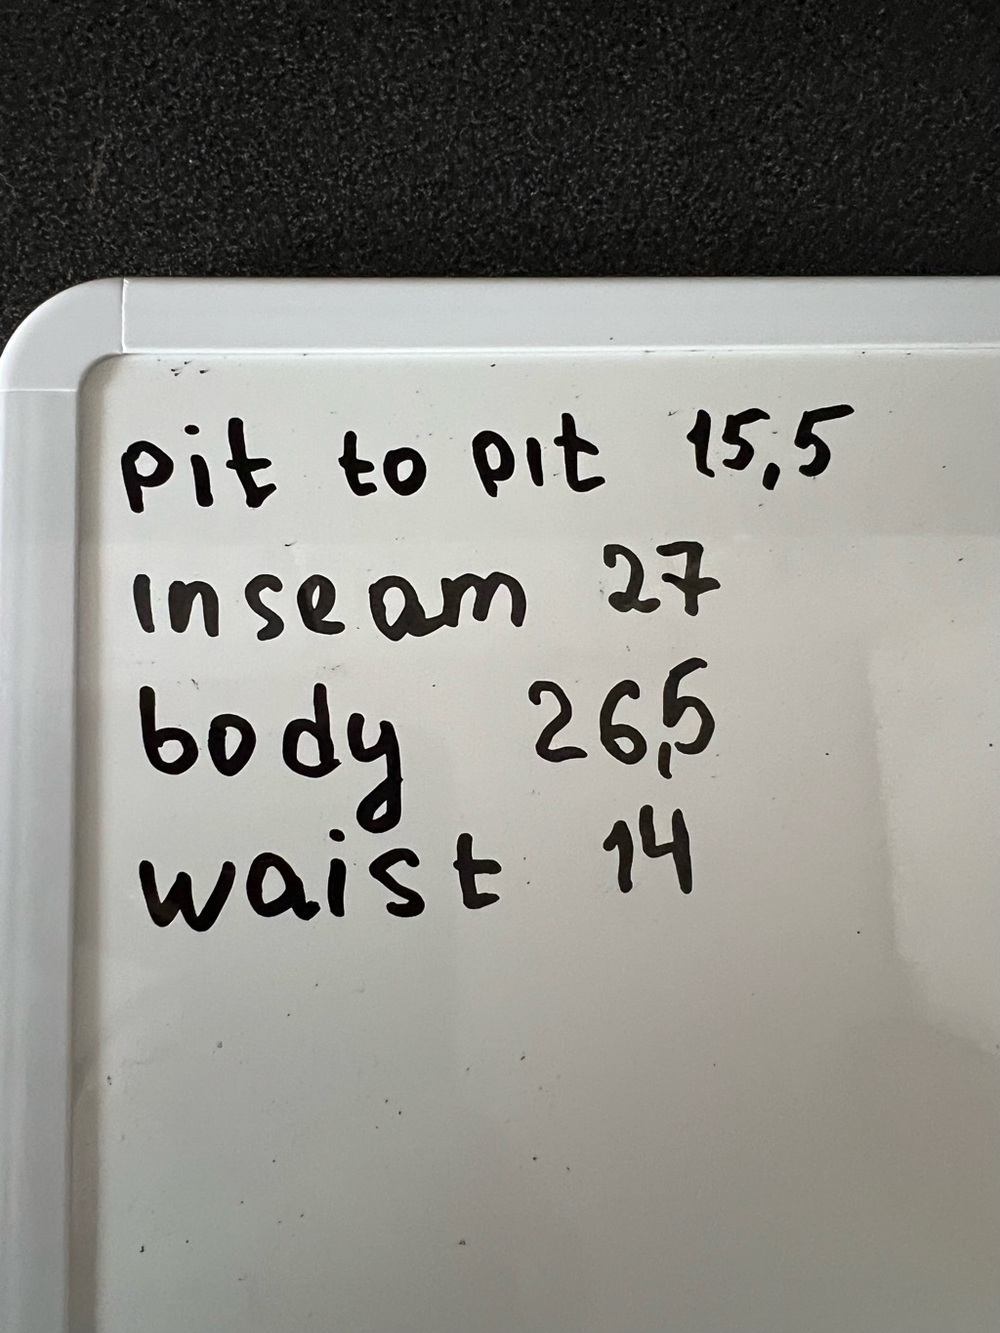 pit to pit 15,5
inseam 27
body 26,5
waist 14